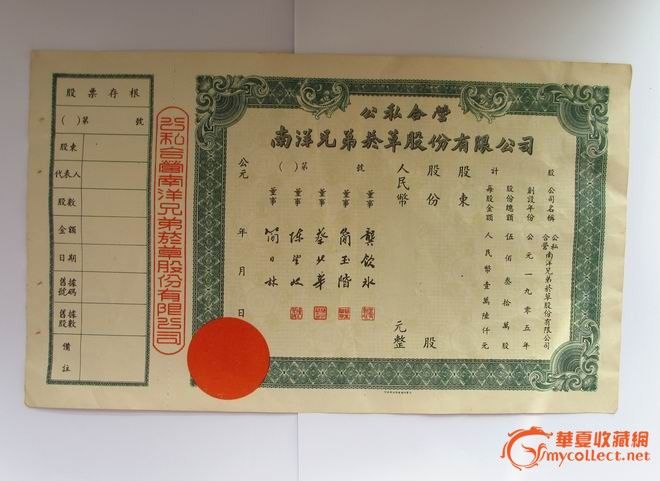 公私合營
南洋兄弟菸草股份有限公司
股 公司名稱 公私合營南洋兄弟菸草股份有限公司
創設年份 公元一九零五年
計 股份總額 伍佰叁拾萬股
每股金額 人民幣壹萬陸仟元
股東
股份 股
人民幣 元整
( )第 號
董事 龔飲冰
董事 簡玉階
董事
董事
董事 簡日林
公元 年 月 日
公私合營南洋兄弟菸草股份有限公司
股票存根
( )第 號
股東
代表人
股數
金額
日期
舊據號碼
舊據股數
備註
華夏收藏網
mycollect.net